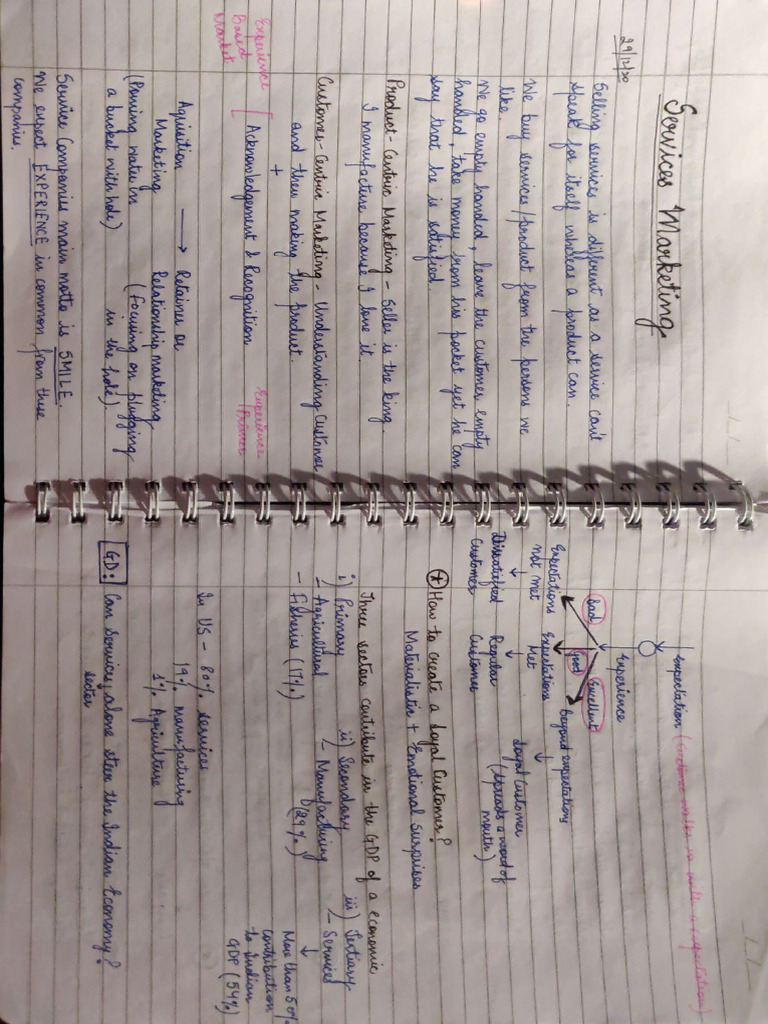 29/12/20
Services Marketing
Selling services is different as a service can't
speak for itself whereas a product can.
We buy services/product from the persons we
like.
We go empty handed, leave the customer empty
handed, take money from his pocket yet he can
say that he is satisfied.
Product-Centric Marketing - Seller is the king.
I manufacture because I love it.
Customer-Centric Marketing - Understanding customer
and then making the product.
+
Experience
Based
Market
[ Acknowledgement & Recognition
Experience
Aquisition → Retainer or
Marketing Relationship marketing
water in (focusing on plugging
a bucket with hole) in the hole).
Service Companies main motto is SMILE.
We expect EXPERIENCE in common from these
companies.
Expectation
Experience
Bad Good Excellent
Expectations Expectations beyond expectations
not met Met
↓ ↓ ↓
Dissatisfied Regular Loyal Customer
Customer Customer (spreads a word of
mouth)
* How to create a Loyal Customer?
Materialistic + Emotional Surprises
Three sectors contribute in the GDP of a economic
i) Primary ii) Secondary iii) Tertiary
- Agricultural - Manufacturing - Services
- Fisheries (17%) (29%) ↓
More than 50%
contribution
to Indian
GDP (54%)
In US - 80% services
19% manufacturing
1% Agriculture
GD: Can Services alone steer the Indian Economy?
sector